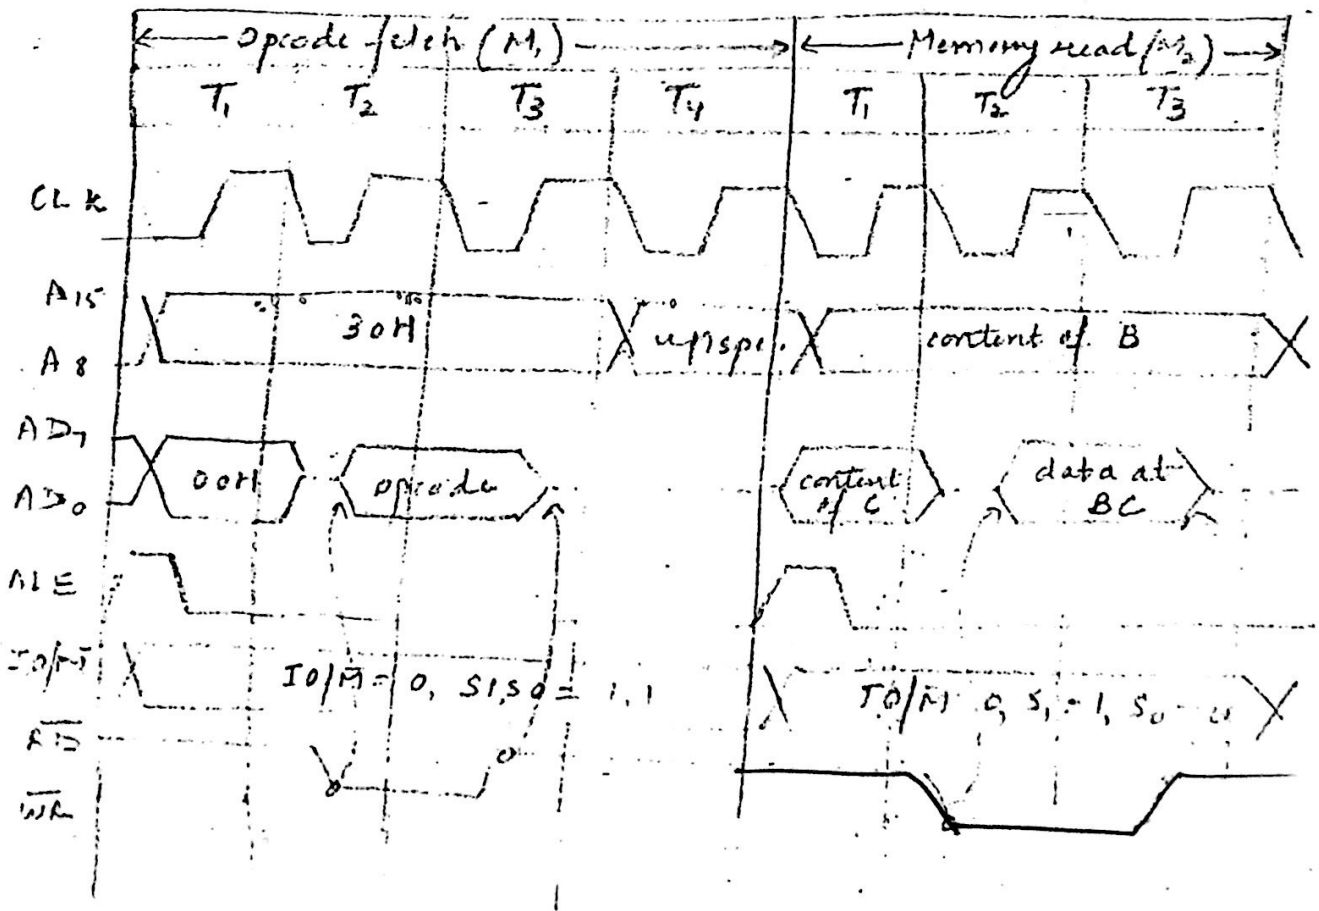 Opcode fetch (M₁) Memory read (M₂)
T₁ T₂ T₃ T₄ T₁ T₂ T₃
CLK
A15
30H unspe. content of B
A8
AD₇
00H opcode content of C data at BC
AD₀
ALE
IO/M̅ IO/M̅ = 0, S1, S0 = 1, 1 IO/M̅ 0, S₁ = 1, S₀ = 0
R̅D̅
W̅R̅